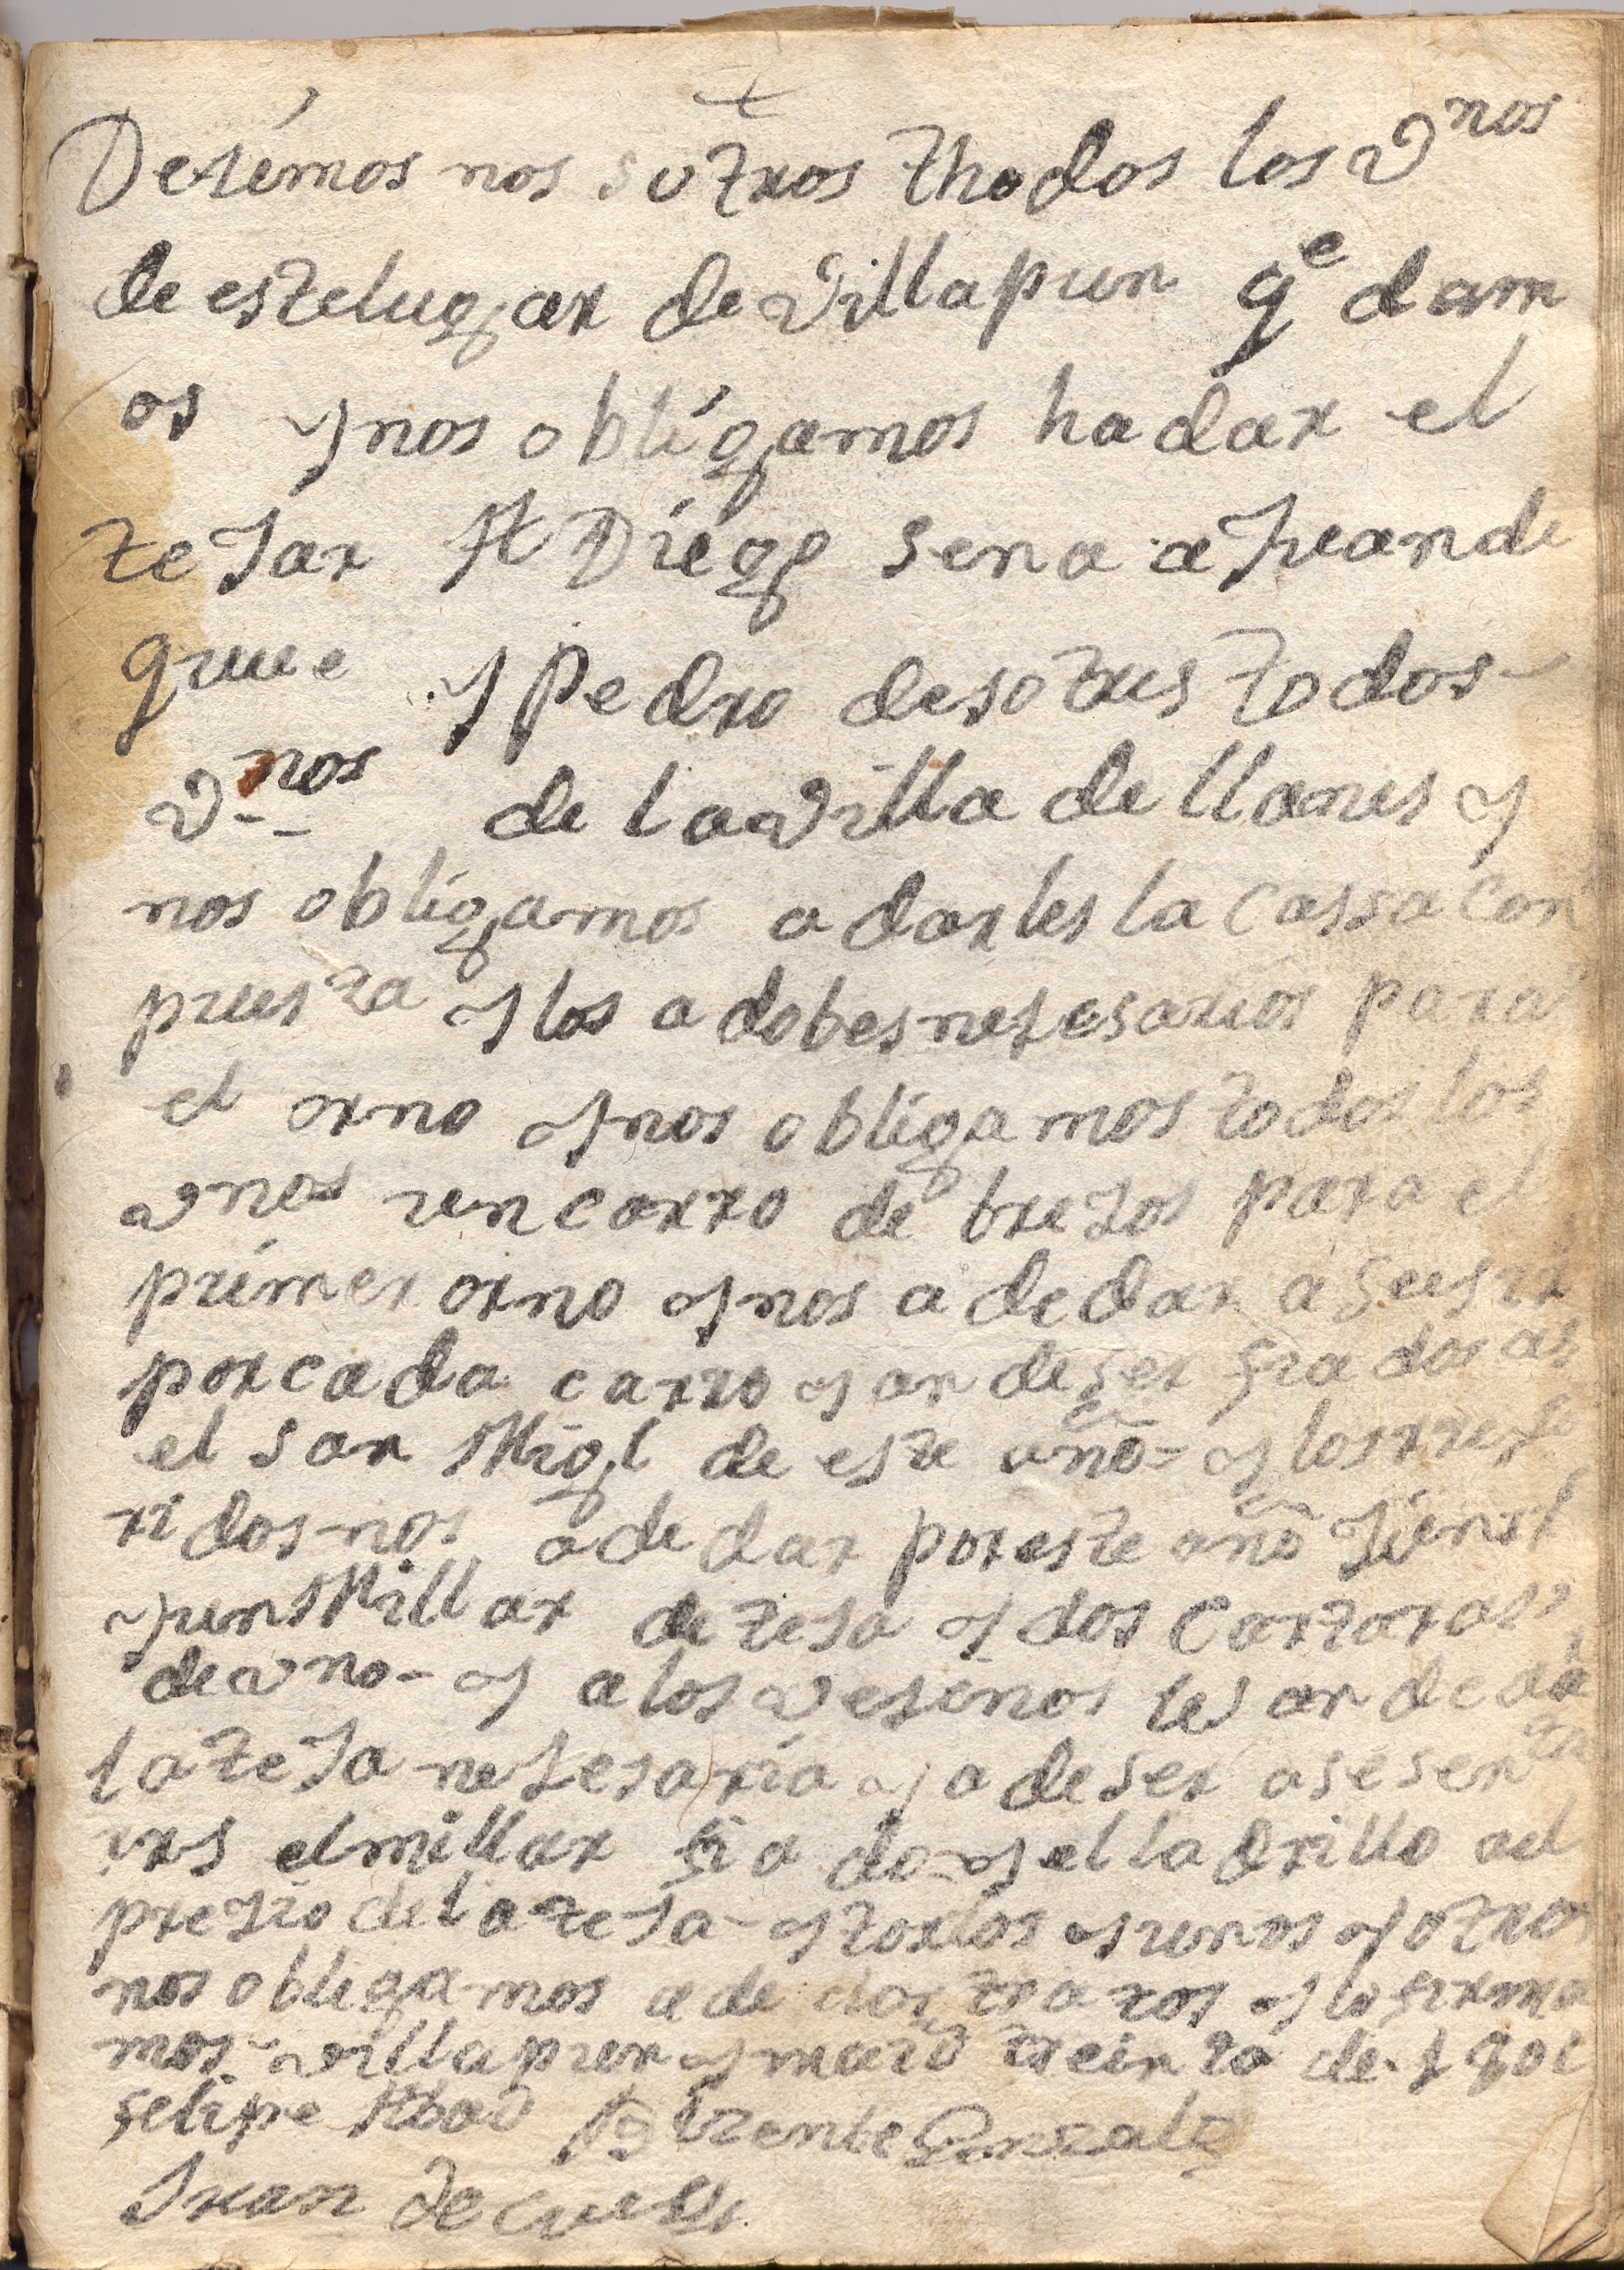 +
Desémos nos sotros thodos los vnos
de estelugar de villapun qe dam
os y nos obligamos ha dar el
tejar A Diégo sena a Juan de
que y Pedro de sotres todos
vnos de la villa de llanes y
nos obligamos a darles la cassa con
puesta y los adobes nesesarios para
el orno y nos obligamos todos los
vnos un carro de bresos para el
primer orno y nos a de dar a
por cada carro y an de ser fiados as
el san Migl de este año y los rrefe
ridos nos a de dar por este año
y un Millar de teja y dos Cantaras
de vno y a los vesinos les an de da
la teja nesesaria y a de ser a sesenta
rrs el millar fiado y el ladrillo al
presio de la teja y todos y unos y otros
nos obligamos a de dos tratos y lo firma
mos villapun y maio treinta de
felipe Abad Vizente Gonzalez
Juan de